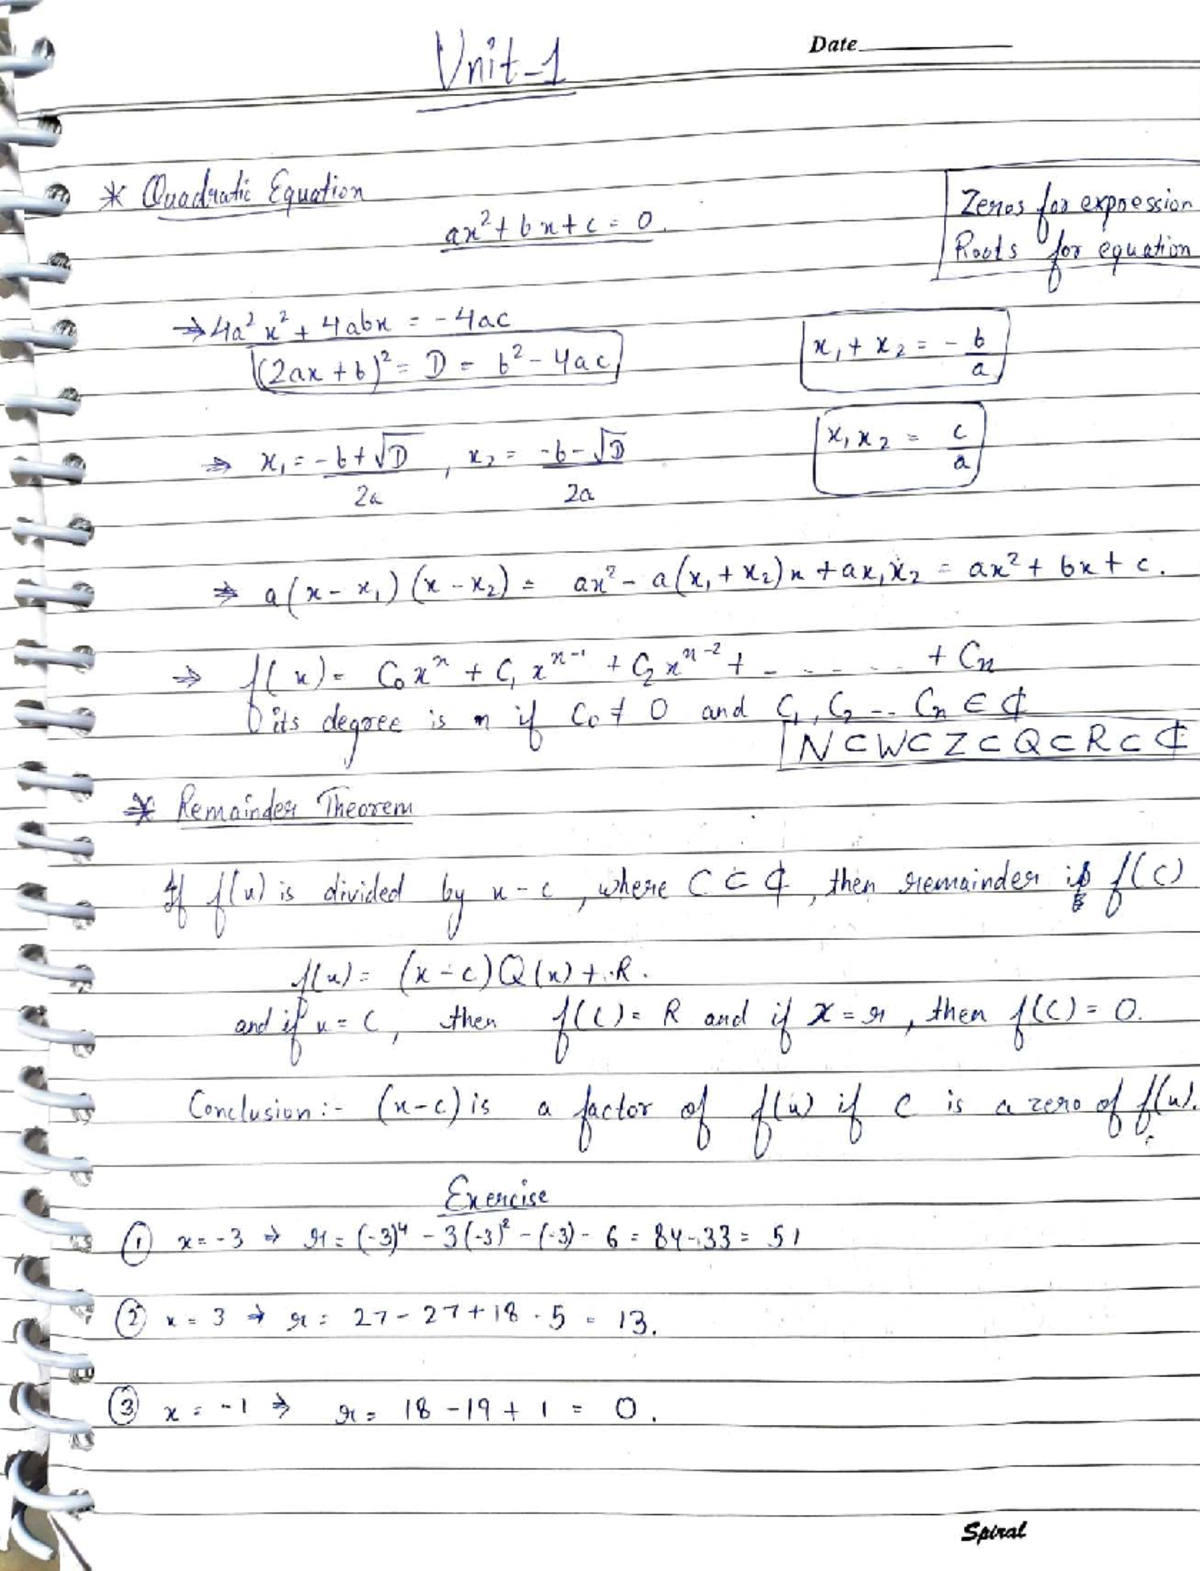 Unit-1
Date
* Quadratic Equation
ax² + bx + c = 0.
Zeros for expression
Roots for equation
⇒ 4a²x² + 4abx = -4ac
(2ax + b)² = D = b² - 4ac
x₁ + x₂ = -b/a
⇒ x₁ = (-b + √D)/2a , x₂ = (-b - √D)/2a
x₁x₂ = c/a
⇒ a(x - x₁)(x - x₂) = ax² - a(x₁ + x₂)x + ax₁x₂ = ax² + bx + c.
⇒ f(x) = C₀xⁿ + C₁xⁿ⁻¹ + C₂xⁿ⁻² + - - - - - + Cₙ
its degree is n if C₀ ≠ 0 and C₁, C₂ -- Cₙ ∈ ₵
N ⊂ W ⊂ Z ⊂ Q ⊂ R ⊂ ₵
* Remainder Theorem
If f(x) is divided by x - c, where C ∈ ₵, then remainder is f(C)
f(x) = (x - c)Q(x) + R.
and if x = C, then f(C) = R and if x = r, then f(C) = 0.
Conclusion :- (x-c) is a factor of f(x) if C is a zero of f(x).
Exercise
① x = -3 ⇒ r = (-3)⁴ - 3(-3)² - (-3) - 6 = 84 - 33 = 51
② x = 3 ⇒ r = 27 - 27 + 18 - 5 = 13.
③ x = -1 ⇒ r = 18 - 19 + 1 = 0.
Spiral